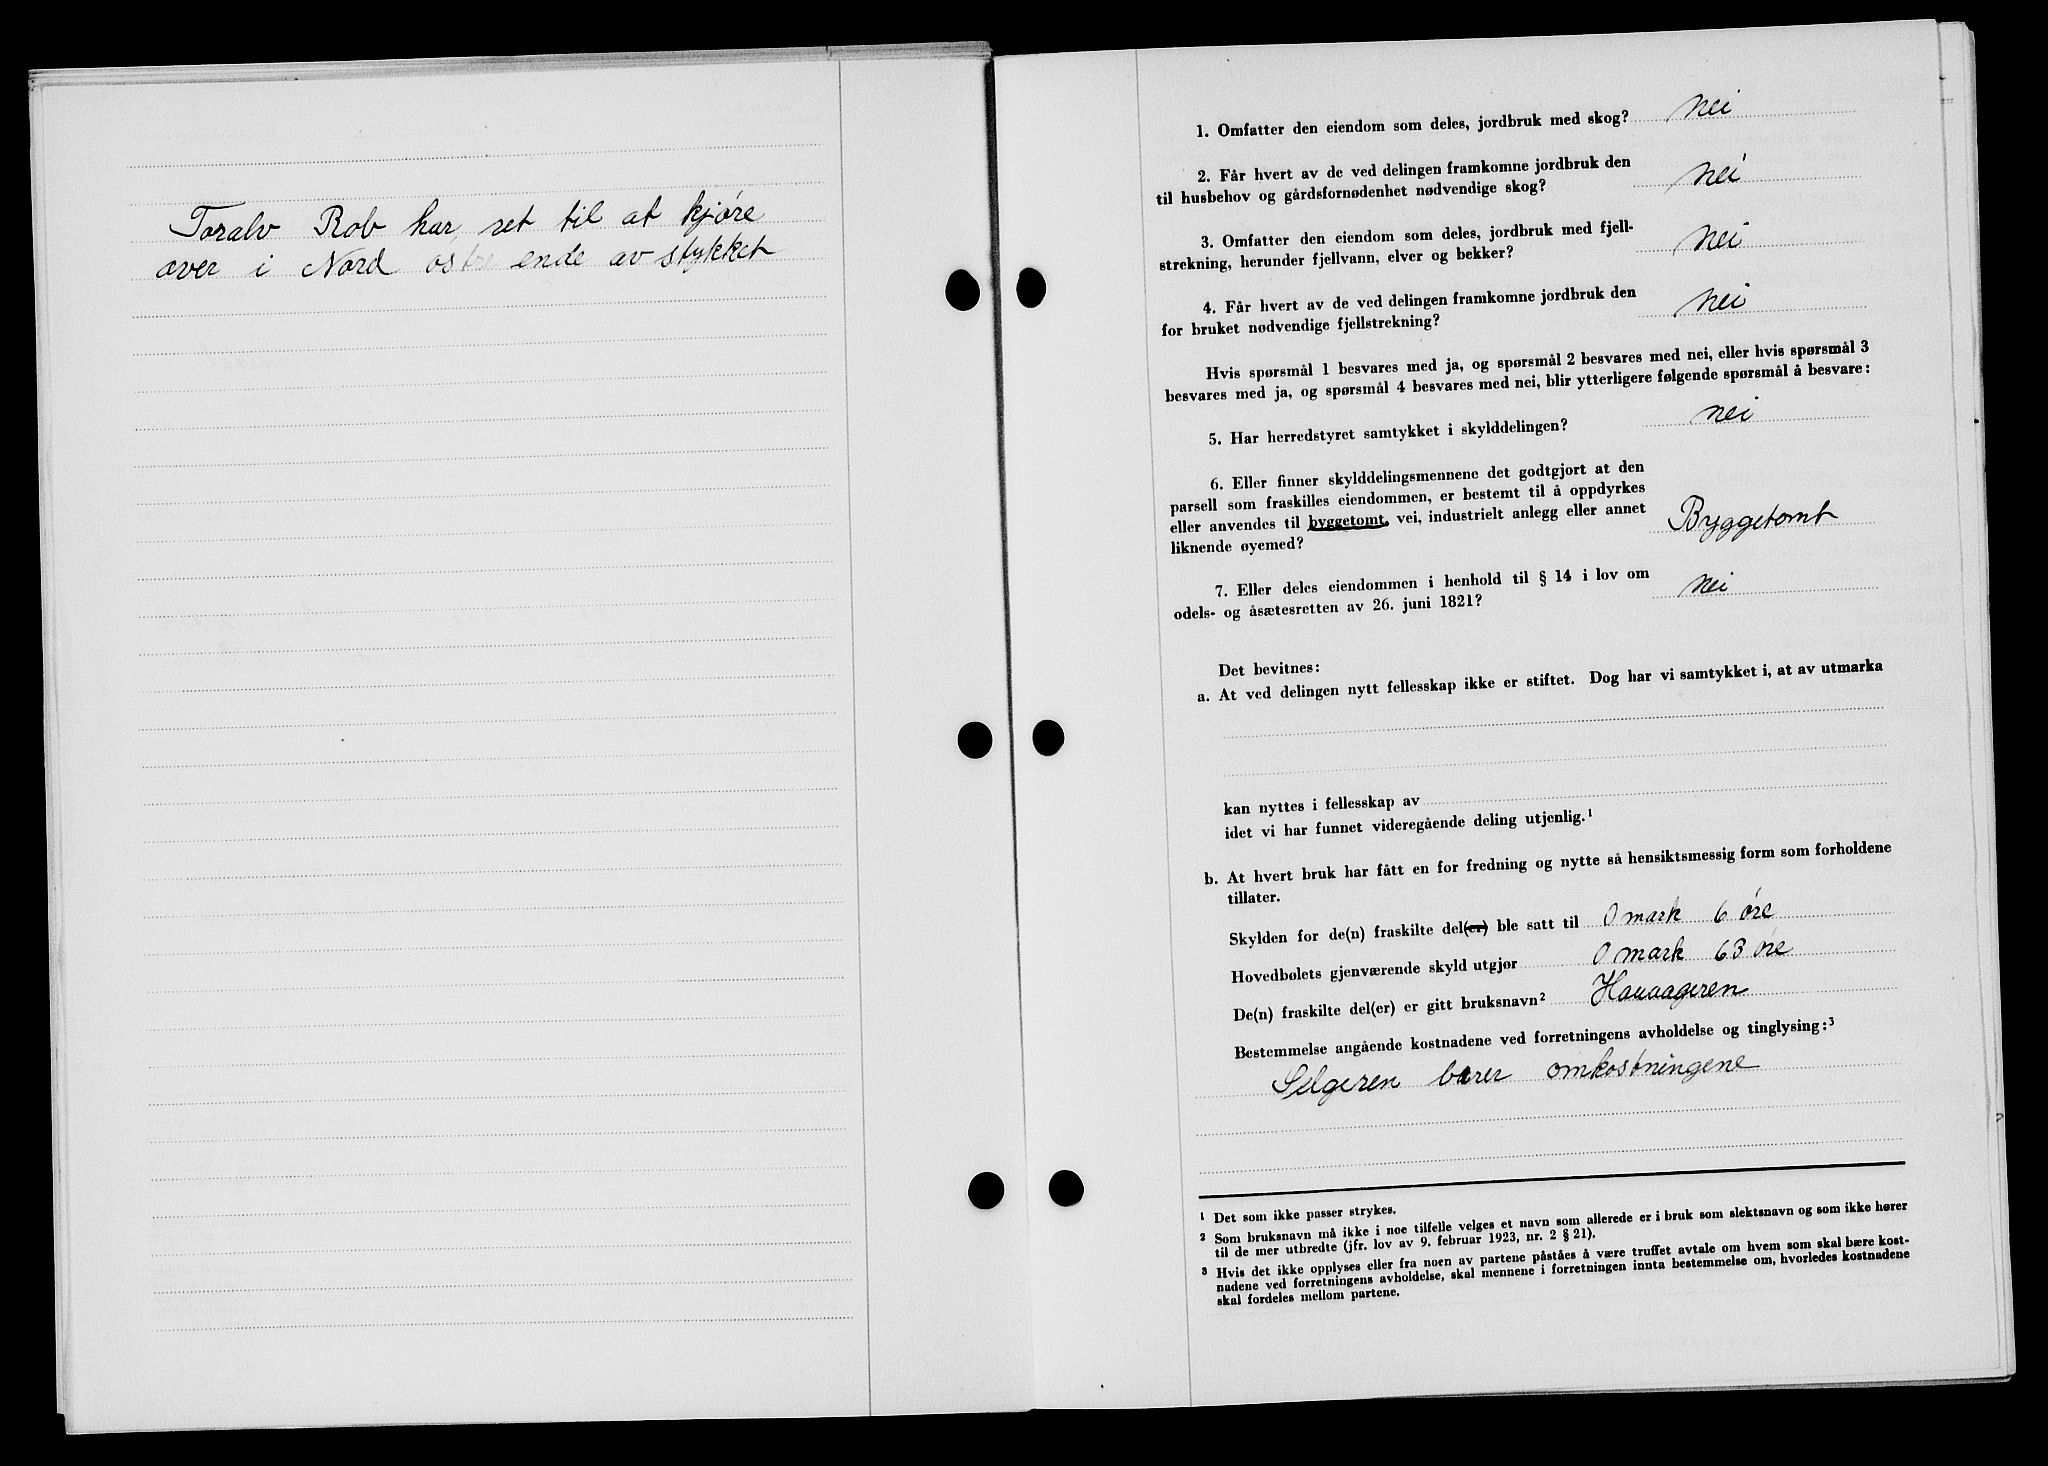 Toralv Rob har ret til at kjøre
over i Nord østre ende av stykket
1. Omfatter den eiendom som deles, jordbruk med skog? Nei
2. Får hvert av de ved delingen framkomne jordbruk den
til husbehov og gårdsfornødenhet nødvendige skog? Nei
3. Omfatter den eiendom som deles, jordbruk med fjell-
strekning, herunder fjellvann, elver og bekker? Nei
4. Får hvert av de ved delingen framkomne jordbruk den
for bruket nødvendige fjellstrekning? Nei
Hvis spørsmål 1 besvares med ja, og spørsmål 2 besvares med nei, eller hvis spørsmål 3
besvares med ja, og spørsmål 4 besvares med nei, blir ytterligere følgende spørsmål å besvare:
5. Har herredstyret samtykket i skylddelingen? nei
6. Eller finner skylddelingsmennene det godtgjort at den
parsell som fraskilles eiendommen, er bestemt til å oppdyrkes
eller anvendes til byggetomt, vei, industrielt anlegg eller annet
liknende øyemed? Byggetomt
7. Eller deles eiendommen i henhold til § 14 i lov om
odels- og åsætesretten av 26. juni 1821? Nei
Det bevitnes:
a. At ved delingen nytt fellesskap ikke er stiftet. Dog har vi samtykket i, at av utmarka
kan nyttes i fellesskap av
idet vi har funnet videregående deling utjenlig.¹
b. At hvert bruk har fått en for fredning og nytte så hensiktsmessig form som forholdene
tillater.
Skylden for de(n) fraskilte del(er) ble satt til 0 mark 6 øre
Hovedbølets gjenværende skyld utgjør 0 mark 63 øre
De(n) fraskilte del(er) er gitt bruksnavn² Hauaageren
Bestemmelse angående kostnadene ved forretningens avholdelse og tinglysing:³
Selgeren bærer omkostningene
¹ Det som ikke passer strykes.
² Som bruksnavn må ikke i noe tilfelle velges et navn som allerede er i bruk som slektsnavn og som ikke hører
til de mer utbredte (jfr. lov av 9. februar 1923, nr. 2 § 21).
³ Hvis det ikke opplyses eller fra noen av partene påståes å være truffet avtale om hvem som skal bære kost-
nadene ved forretningens avholdelse, skal mennene i forretningen innta bestemmelse om, hvorledes kostnadene
skal fordeles mellom partene.